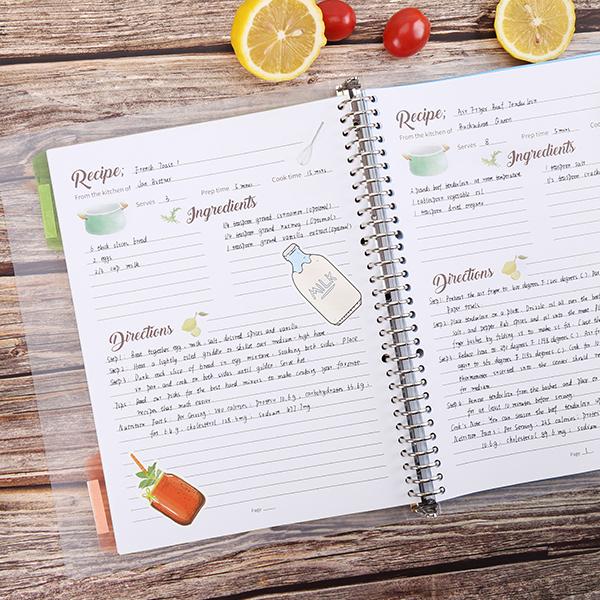 Recipe; French Toast 1
From the kitchen of Joe Buttner
Serves 3 Prep time 5 mins Cook time 15 mins
Ingredients
6 thick slices bread
2 eggs
2/3 cup milk
1/4 teaspoon ground cinnamon (optional)
1/4 teaspoon ground nutmeg (optional)
1 teaspoon ground vanilla extract (optional)
MILK
Directions
Step 1: Beat together egg, milk, salt, desired spices and vanilla
Step 2: Heat a lightly oiled griddle or skillet over medium-high heat
Step 3: Dunk each slice of bread in egg mixture, soaking both sides. Place
in pan, and cook on both sides until golden. Serve hot.
Tips: Read our picks for the best hand mixers to make creating your favorite
recipes that much easier.
Nutrition Facts: Per Serving: 240 calories; protein 10.6g; carbohydrates 33.6g;
fat 6.6g; cholesterol 128.4mg; sodium 477.7mg
Page
Recipe; Air Fryer Beef Tenderloin
From the kitchen of
Serves 8 Prep time 5 mins
Ingredients
2 pounds beef tenderloin, at room temperature
1 tablespoon vegetable oil
1 teaspoon dried oregano
1 teaspoon salt
Directions
Step 1: Preheat the air fryer to 400 degrees F (200 degrees C). Pat
paper towels.
Step 2: Place tenderloin on a plate. Drizzle oil all over the beef
salt, and pepper. Rub spices and oil into the meat.
fryer basket by folding it to make it fit. Close the
Step 3: Reduce heat to 390 degrees F
thermometer inserted into the center should
for medium.
Step 4: Remove tenderloin from the basket and place on
for at least 10 minutes before serving.
Cook's Note: You can season the beef tenderloin
Nutrition Facts: Per Serving: 265 calories; protein
10.6g; cholesterol 89.6mg; sodium
Page 1